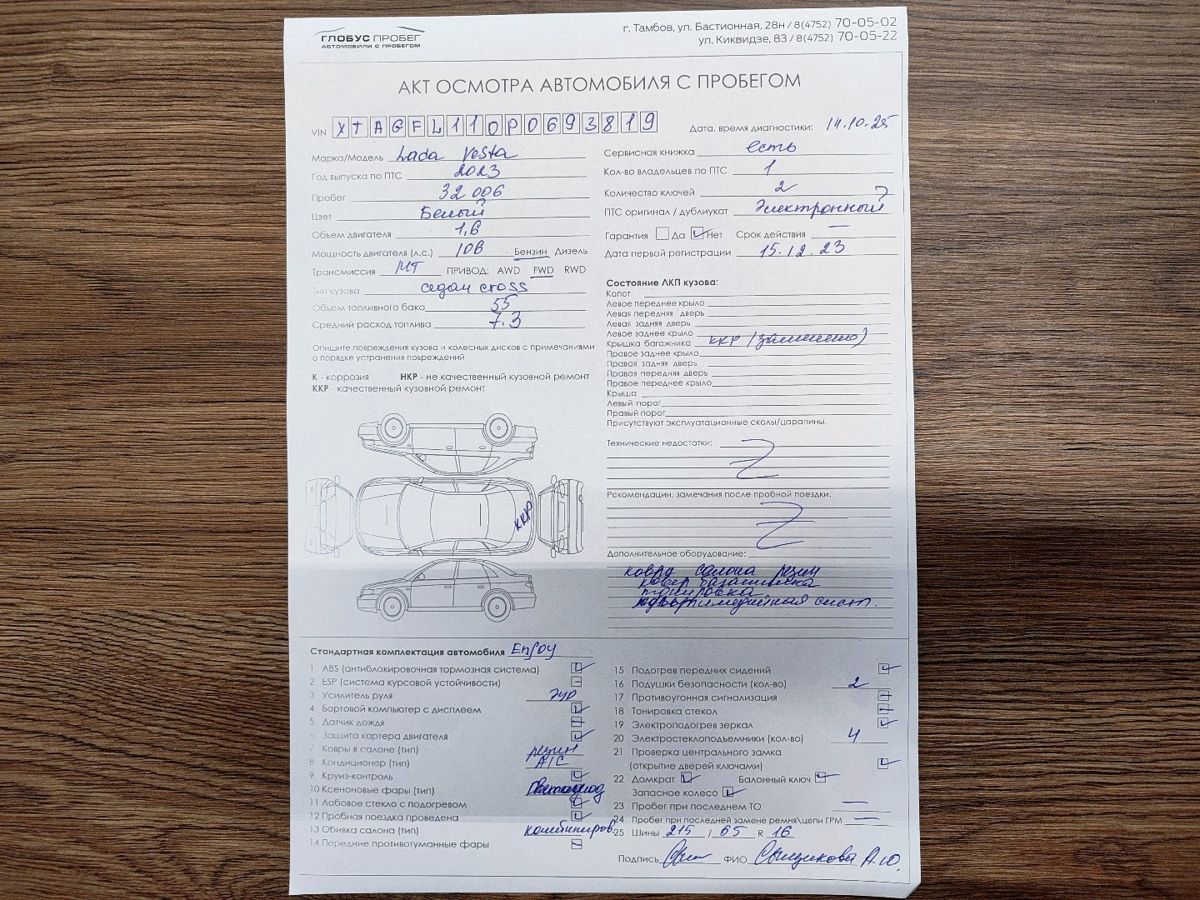 ГЛОБУС ПРОБЕГ
АВТОМОБИЛИ С ПРОБЕГОМ
г. Тамбов, ул. Бастионная, 28н / 8(4752) 70-05-02
ул. Киквидзе, 83 / 8(4752) 70-05-22
АКТ ОСМОТРА АВТОМОБИЛЯ С ПРОБЕГОМ
VIN XTAGFL110P0693819
Дата, время диагностики: 14.10.25
Марка/Модель Lada Vesta
Год выпуска по ПТС 2023
Пробег 32 006
Цвет Белый
Объем двигателя 1,6
Мощность двигателя (л.с.) 106 Бензин Дизель
Трансмиссия МТ ПРИВОД: AWD FWD RWD
Тип кузова седан cross
Объем топливного бака 55
Средний расход топлива 7.3
Сервисная книжка есть
Кол-во владельцев по ПТС 1
Количество ключей 2
ПТС оригинал / дубликат Электронный
Гарантия Да Нет Срок действия —
Дата первой регистрации 15.12.23
Опишите повреждения кузова и колесных дисков с примечаниями
о порядке устранения повреждений
К - коррозия НКР - не качественный кузовной ремонт
ККР - качественный кузовной ремонт
ККР
Состояние ЛКП кузова:
Капот
Левое переднее крыло
Левая передняя дверь
Левая задняя дверь
Левое заднее крыло
Крышка багажника ККР (заменено)
Правое заднее крыло
Правая задняя дверь
Правая передняя дверь
Правое переднее крыло
Крыша
Левый порог
Правый порог
Присутствуют эксплуатационные сколы/царапины.
Технические недостатки:
Рекомендации, замечания после пробной поездки:
Дополнительное оборудование:
ковры салона резин
ковер багажника
тонировка
сист.
Стандартная комплектация автомобиля Enjoy
1 ABS (антиблокировочная тормозная система)
2 ESP (система курсовой устойчивости)
3 Усилитель руля эур
4 Бортовой компьютер с дисплеем
5 Датчик дождя
6 Защита картера двигателя
7 Ковры в салоне (тип) резин
8 Кондиционер (тип) A/C
9 Круиз-контроль
10 Ксеноновые фары (тип)
11 Лобовое стекло с подогревом
12 Пробная поездка проведена
13 Обивка салона (тип) комбиниров.
14 Передние противотуманные фары
15 Подогрев передних сидений
16 Подушки безопасности (кол-во) 2
17 Противоугонная сигнализация
18 Тонировка стекол
19 Электроподогрев зеркал
20 Электростеклоподъемники (кол-во) 4
21 Проверка центрального замка
(открытие дверей ключами)
22 Домкрат Балонный ключ
Запасное колесо
23 Пробег при последнем ТО —
24 Пробег при последней замене ремня\цепи ГРМ —
25 Шины 215 / 65 R 16
Подпись ФИО А.Ю.